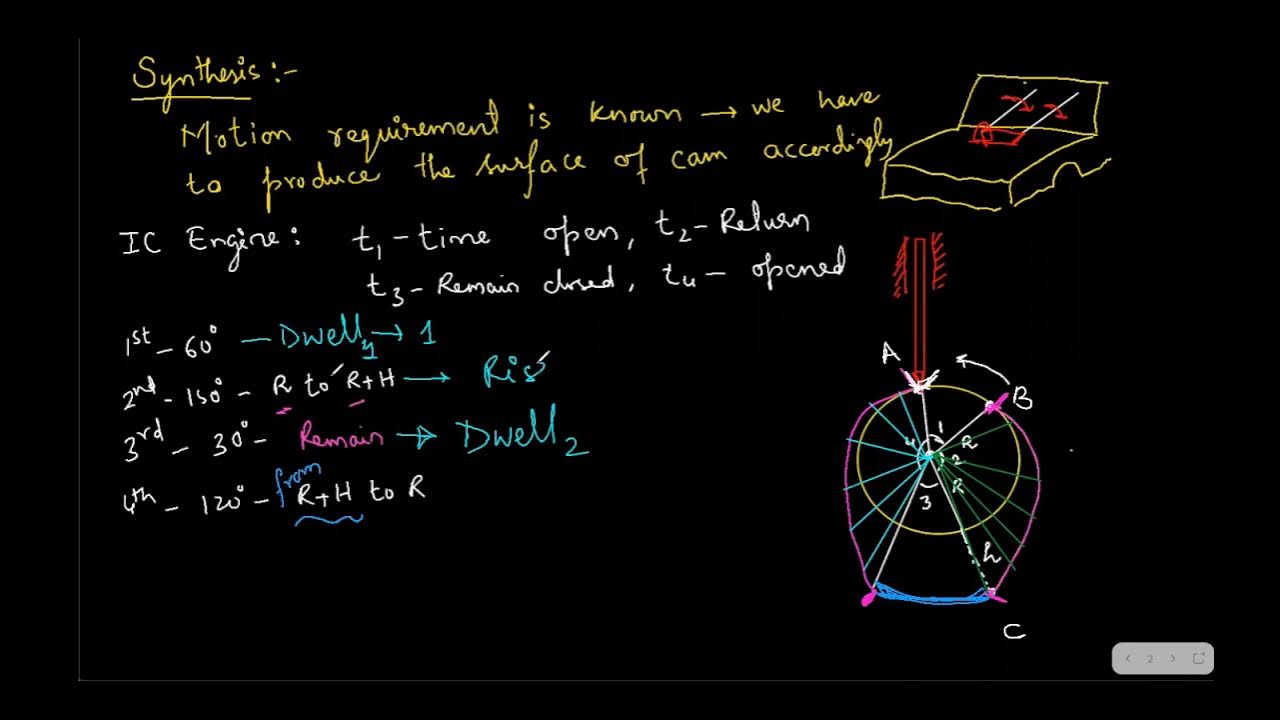 Synthesis :-
Motion requirement is known → we have
to produce the surface of cam accordingly
IC Engine: t₁ - time open, t₂ - Return
t₃ - Remain closed, t₄ - opened
1st - 60° - Dwell₁ → 1
2nd - 150° - R to R+H → Ris
3rd - 30° - Remain → Dwell₂
4th - 120° - from R+H to R
A
B
1
4
R
2
R
3
h
C
2